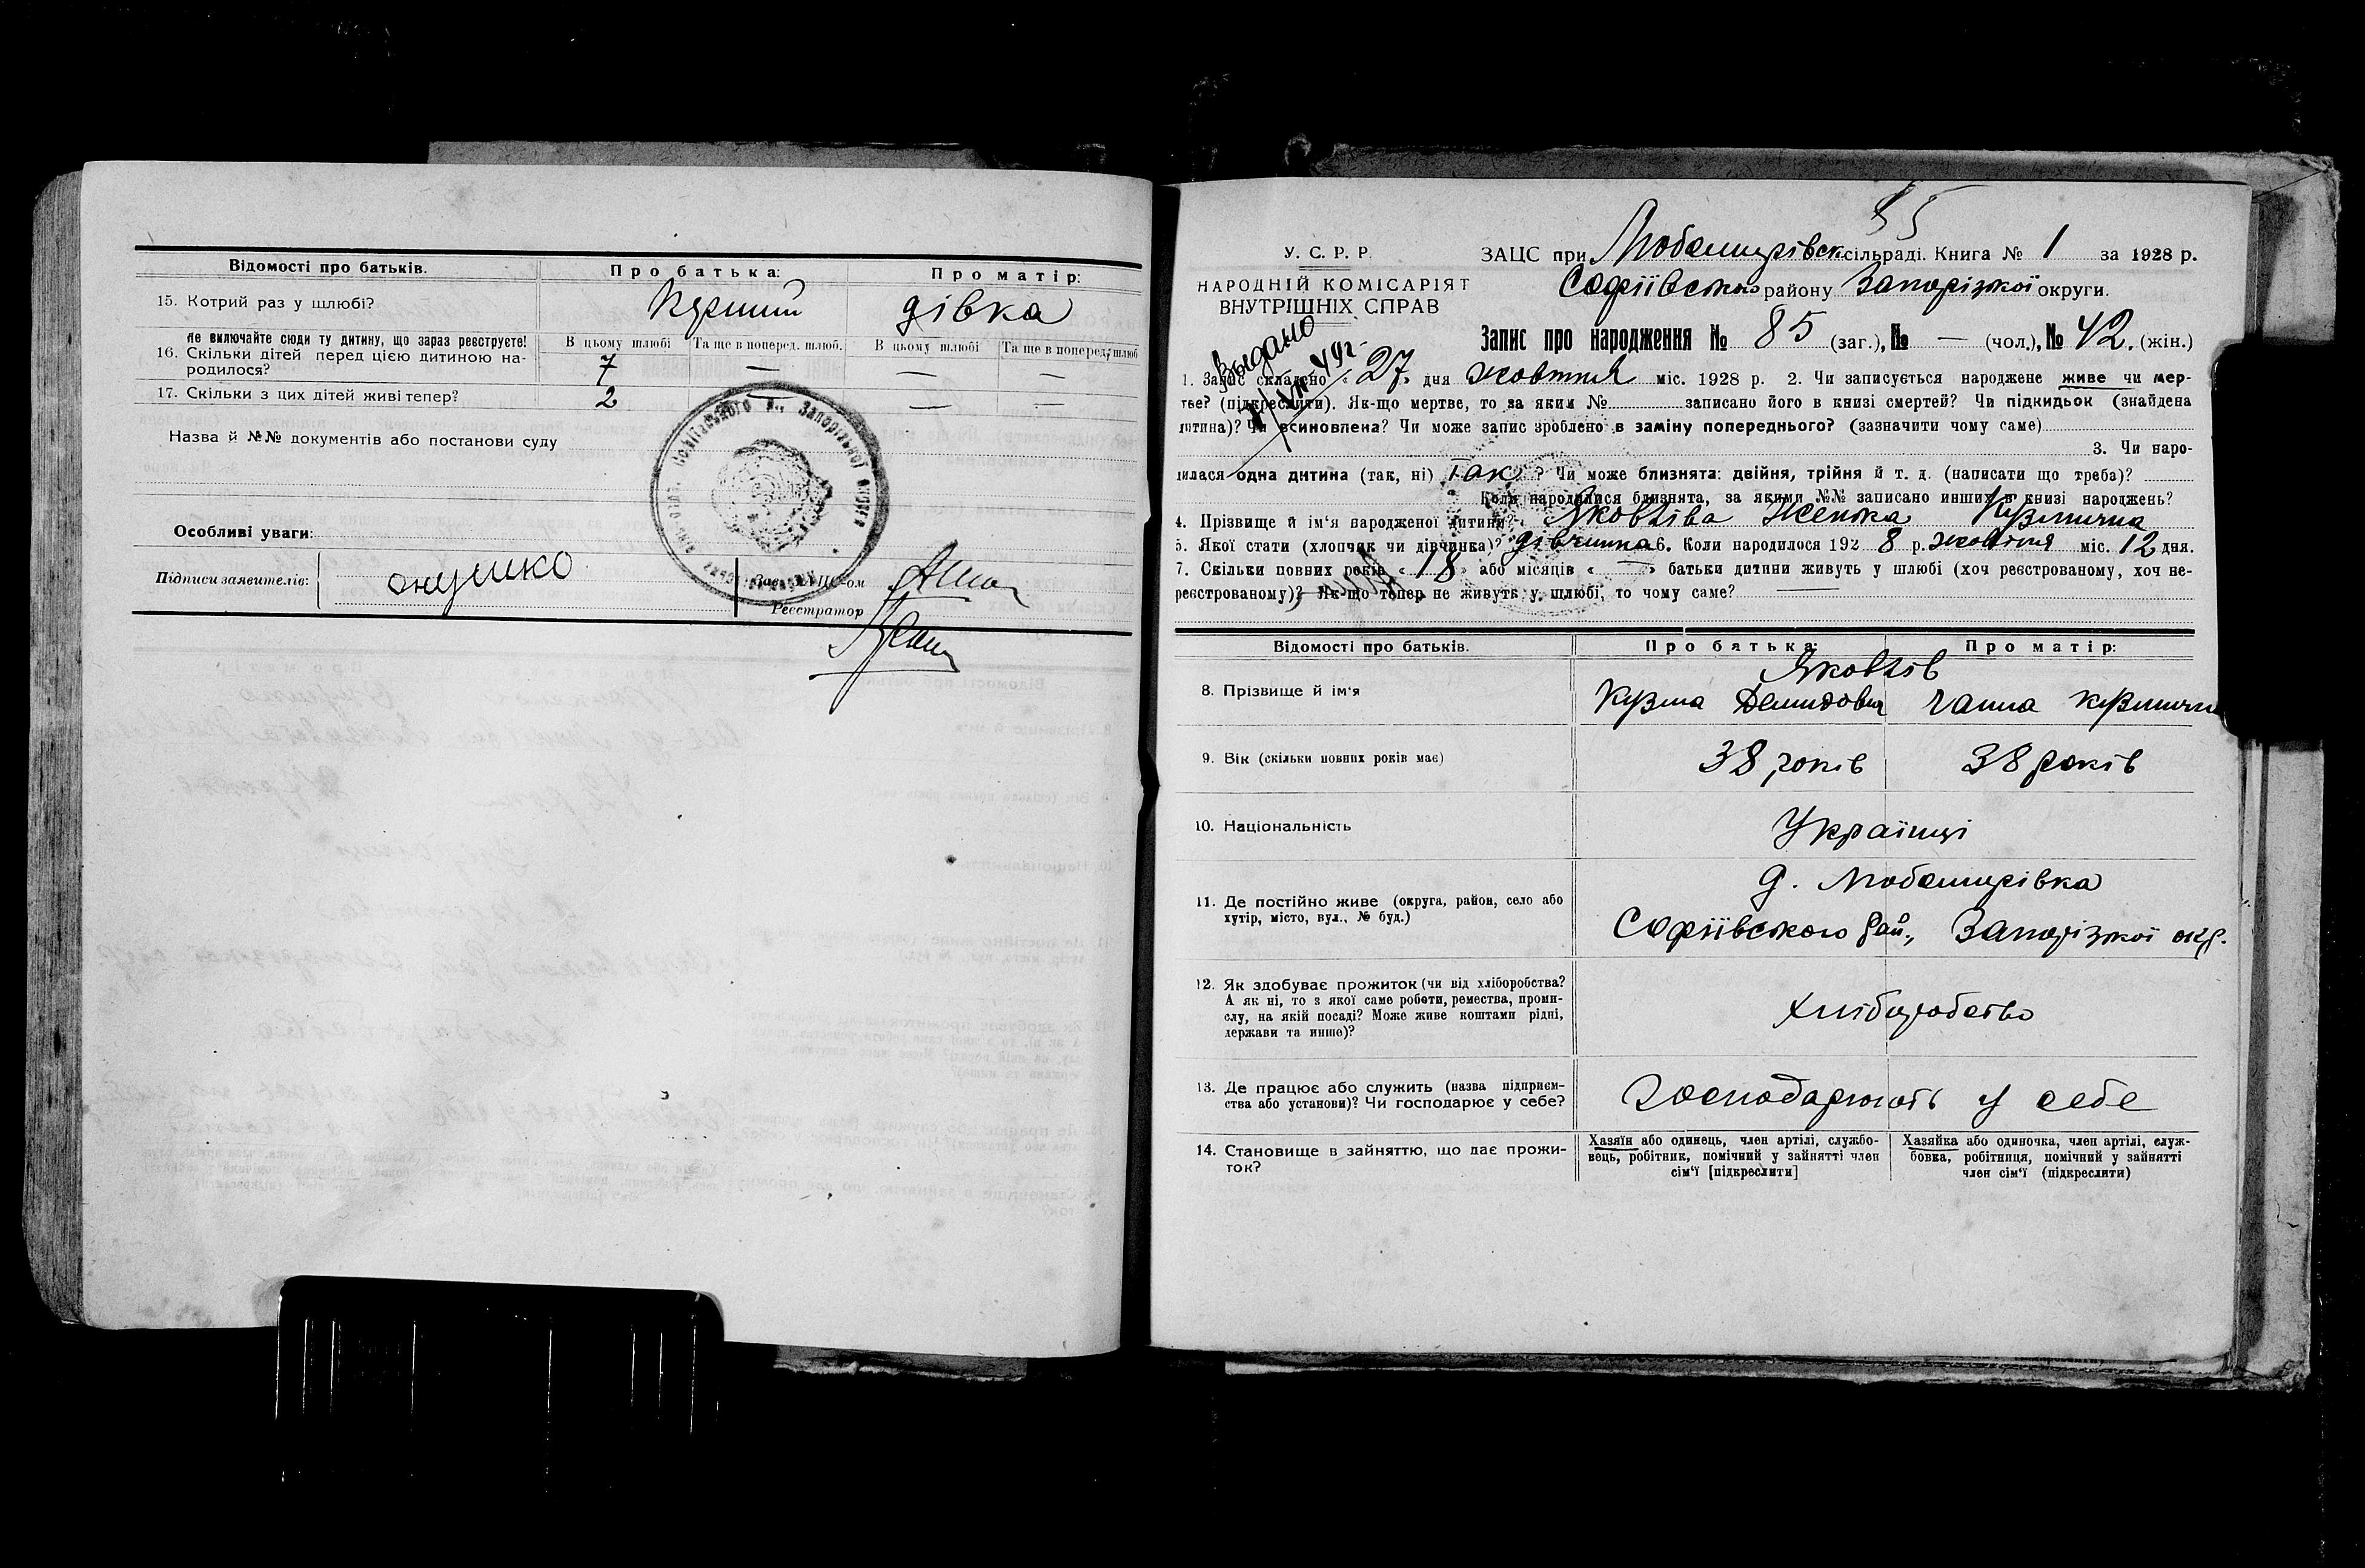 Відомості про батьків. Про батька: Про матір:
15. Котрий раз у шлюбі? Перший дівка
Не включайте сюди ту дитину, що зараз реєструєте! В цьому шлюбі Та ще в поперед. шлюб. В цьому шлюбі Та ще в поперед. шлюб
16. Скільки дітей перед цією дитиною на- 7 — — —
родилося?
17. Скільки з цих дітей живі тепер? 2 — —
Назва й №№ документів або постанови суду
Особливі уваги:
Підписи заявителів: Онушко Зав. ЗАЦС-ом
Реєстратор
85
У. С. Р. Р. ЗАЦС при Любомирівск сільраді. Книга № 1 за 1928 р.
НАРОДНІЙ КОМІСАРІЯТ Софіївського району Запорізької округи.
ВНУТРІШНІХ СПРАВ
Выдано
Запис про народження № 85 (заг.), № — (чол.), № 42. (жін.)
1. Запис складено « 27 » дня жовтня міс. 1928 р. 2. Чи записується народжене живе чи мер-
тве? (підкреслити). Як-що мертве, то за яким № записано його в книзі смертей? Чи підкидьок (знайдена
дитина)? Чи всиновлена? Чи може запис зроблено в заміну попереднього? (зазначити чому саме)
3. Чи наро-
дилася одна дитина (так, ні) Так ? Чи може близнята: двійня, трійня й т. д. (написати що треба)?
Коли народилися близнята, за якими №№ записано инших в книзі народжень?
4. Прізвище й ім'я народженої дитини? Яковліва Женька Кузмична
5. Якої стати (хлопчик чи дівчинка)? дівчинка 6. Коли народилося 192 8 р. жовтня міс. 12 дня.
7. Скільки повних років « 18 » або місяців « — » батьки дитини живуть у шлюбі (хоч реєстрованому, хоч не-
реєстрованому)? Як-що тепер не живуть у шлюбі, то чому саме? —
Відомості про батьків. Про батька: Про матір:
Яковлів
8. Прізвище й ім'я Кузма Демидович Ганна Кузмични
9. Вік (скільки повних років має) 38 років 38 років
10. Національність Українці
д. Любомирівка
11. Де постійно живе (округа, район, село або
хутір, місто, вул., № буд.) Софіївського рай., Запорізкої окр.
12. Як здобуває прожиток (чи від хліборобства?
А як ні, то з якої саме роботи, ремества, проми-
слу, на якій посаді? Може живе коштами рідні, хліборобство
держави та инше)?
13. Де працює або служить (назва підприєм-
ства або установи)? Чи господарює у себе? Господарюють у себе
14. Становище в зайняттю, що дає прожи- Хазяїн або одинець, член артілі, службо- Хазяйка або одиночка, член артілі, служ-
ток? вець, робітник, помічний у зайнятті член бовка, робітниця, помічний у зайнятті
сім'ї [підкреслити] член сім'ї (підкреслити)